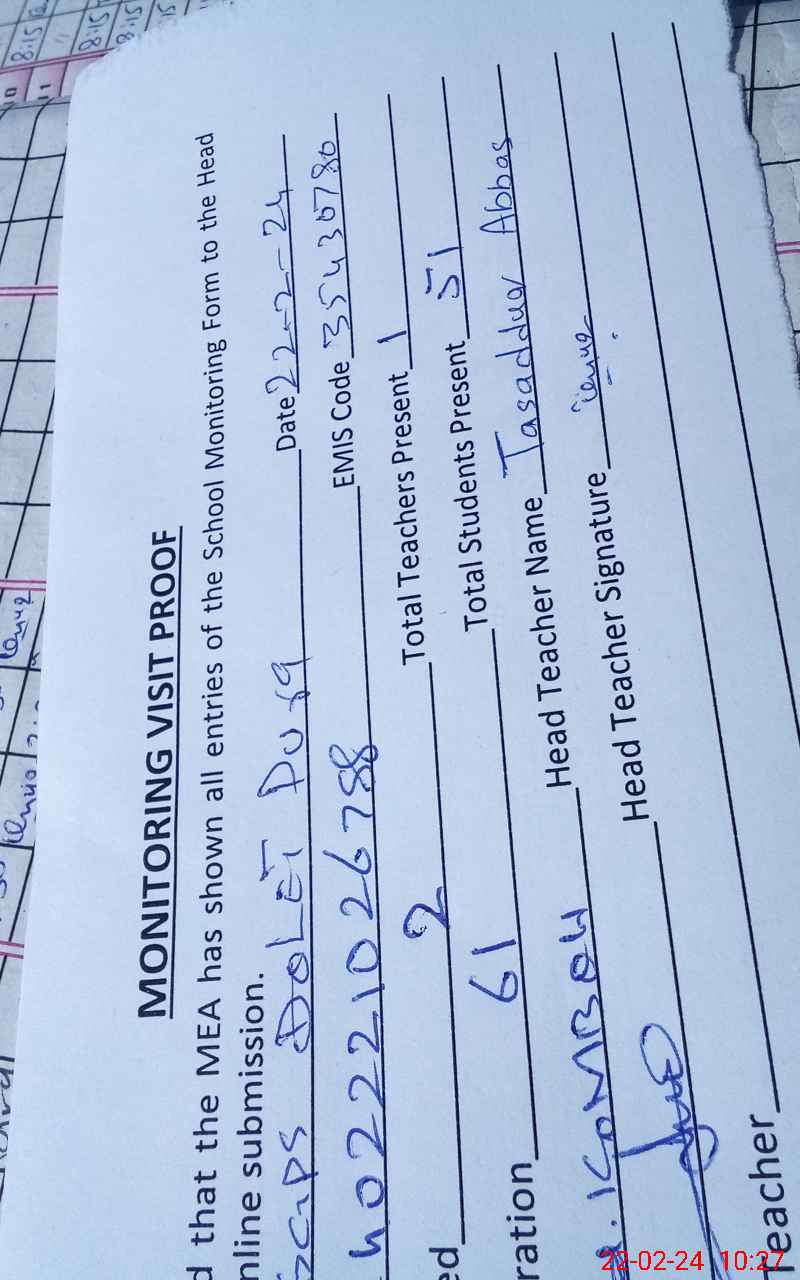 MONITORING VISIT PROOF
d that the MEA has shown all entries of the School Monitoring Form to the Head
nline submission.
DOLET Date 22-2-24
h02221026788 EMIS Code 35430780
ed 2 Total Teachers Present 1
ration 61 Total Students Present 51
KOMBOH Head Teacher Name Tasadduq Abbas
Head Teacher Signature
Teacher
8:15
8:15
8:15
10
11
22-02-24 10:27